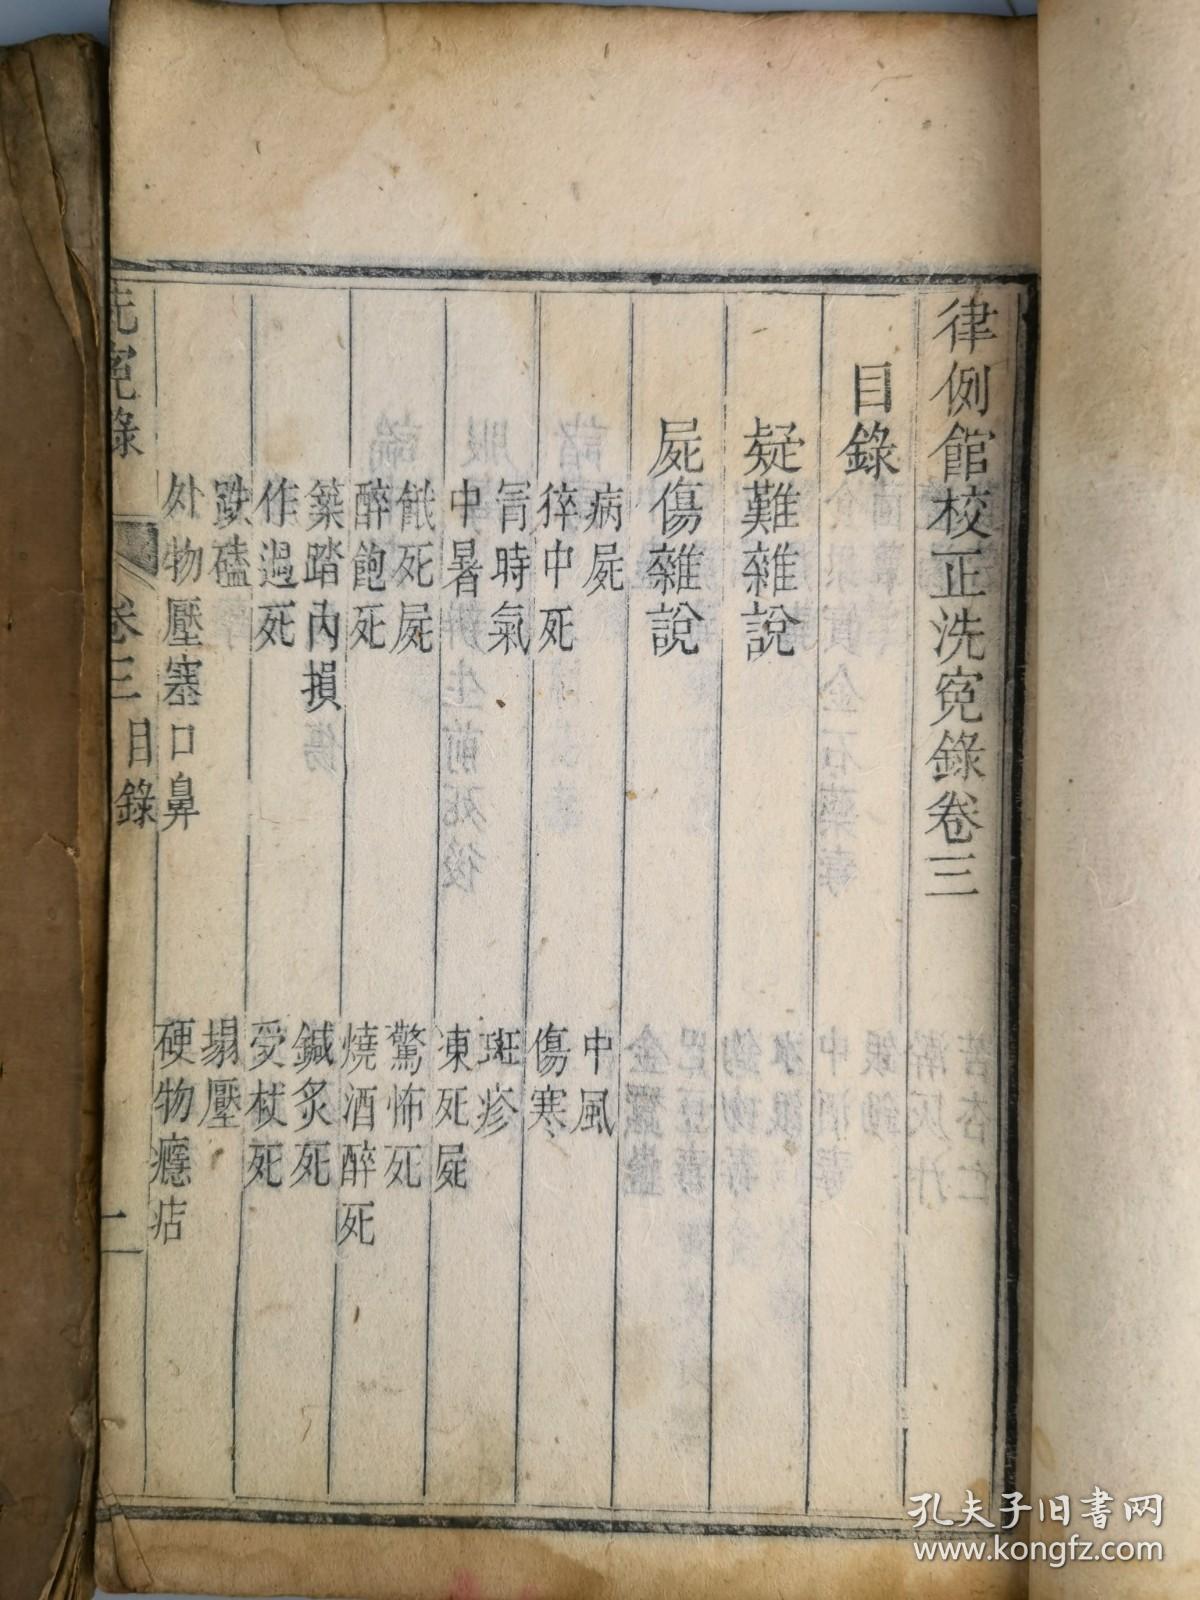 律例館校正洗冤錄卷三
目錄
疑難雜說
屍傷雜說
病屍
中風
猝中死
傷寒
冐時氣
斑疹
中暑
凍死屍
餓死屍
驚怖死
醉飽死
燒酒醉死
築踏內損
鍼炙死
作過死
受杖死
跌磕
塌壓
外物壓塞口鼻
硬物癮痁
洗冤錄
卷三
目錄
孔夫子旧书网
www.kongfz.com